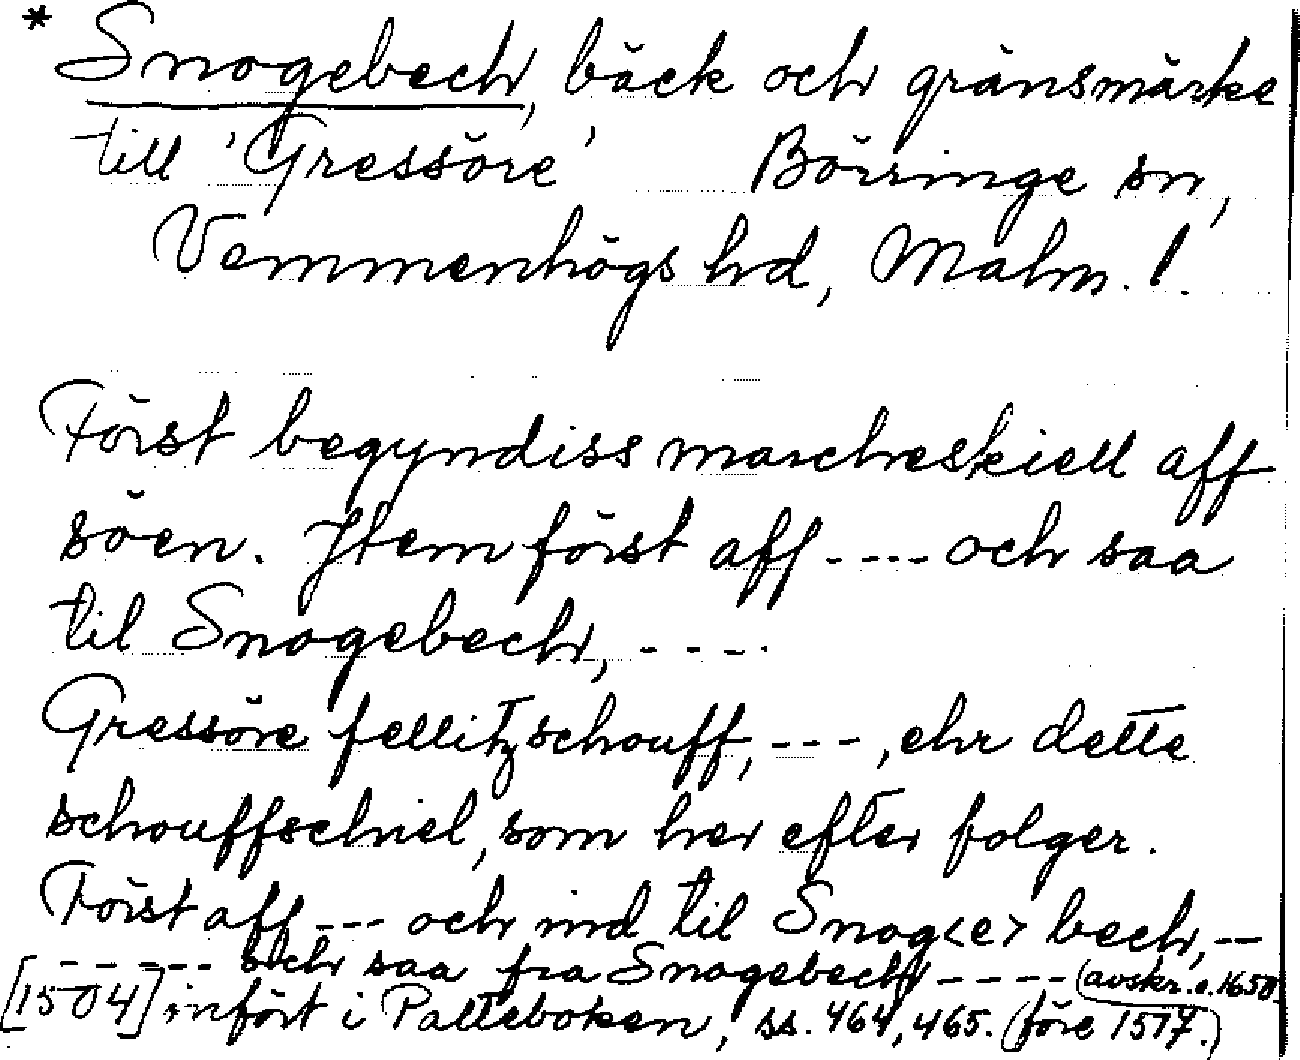 * Snogebech, bäck och gränsmärke
till 'Gressöre' Börringe sn,
Vemmenhögs hd, Malm. l.
Först begyndiss marcheskiell aff
söen. Jtem först aff ---- och saa
til Snogebech, ----.
Gressöre fellitzschouff, ---, ehr dette
schouffschiel, som her efter folger.
Först aff --- och ind til Snog<e> bech, --
------ och saa fra Snogebech ---- (avskr. o. 1650
[1504] infört i Palteboken, ss. 464, 465. (före 1517.)